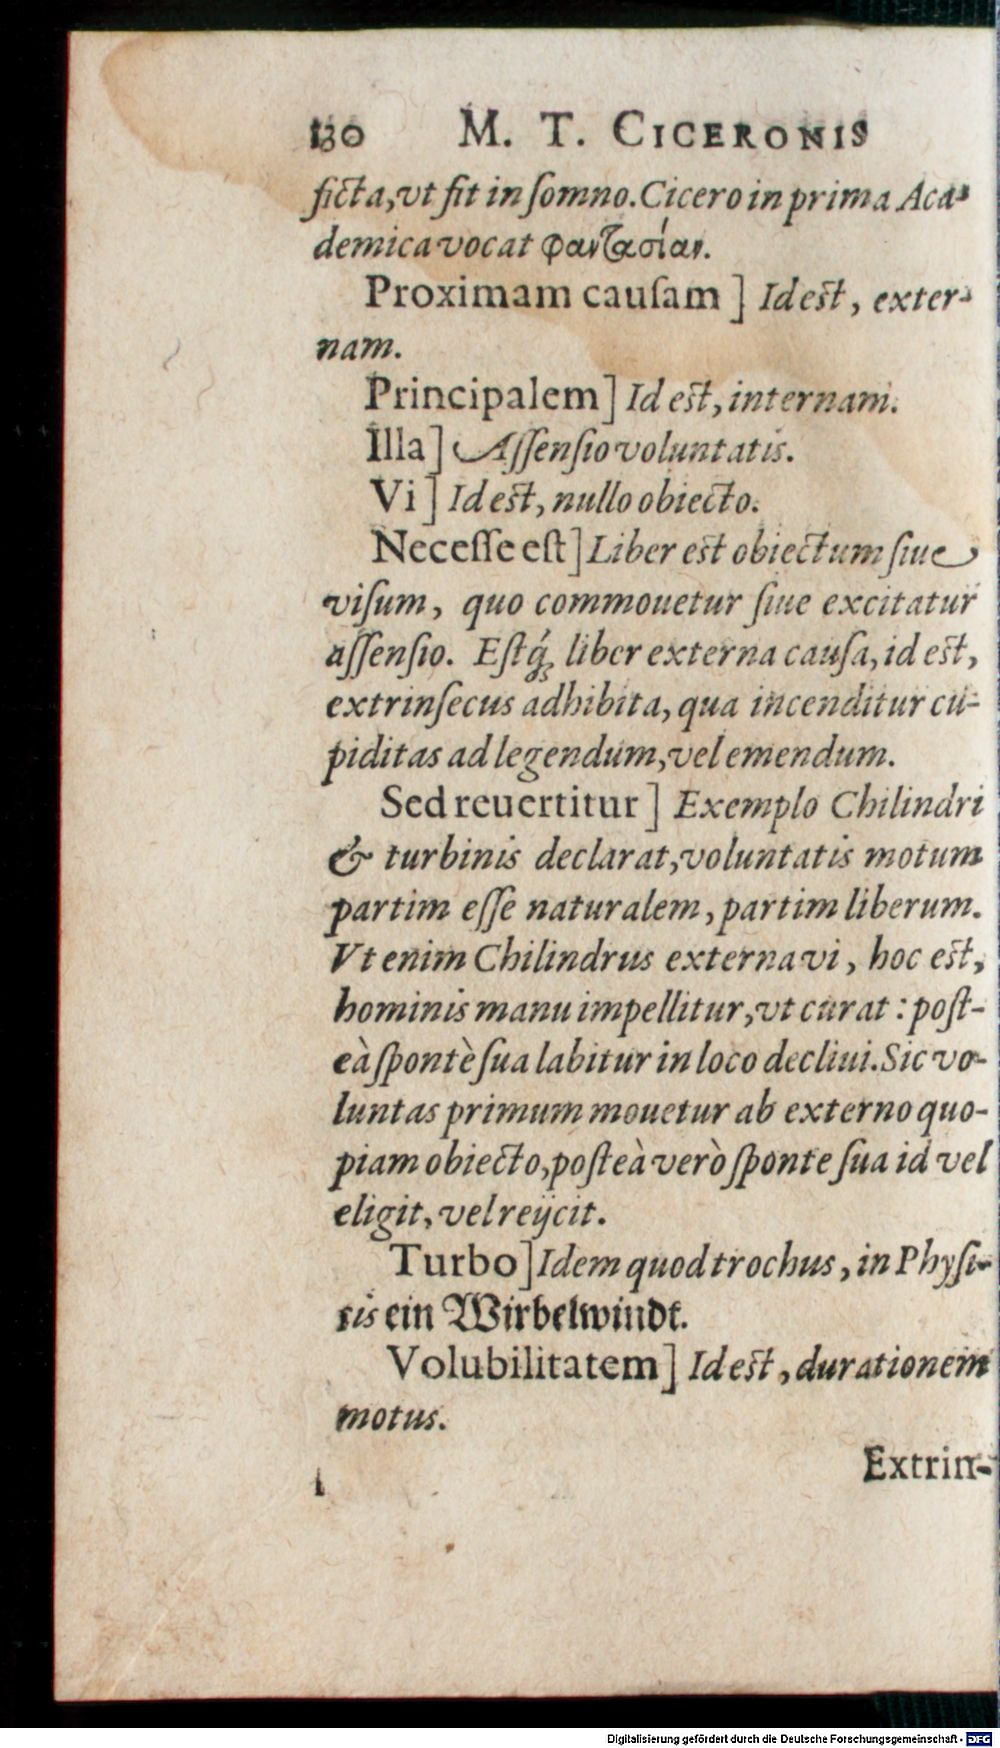 130 M. T. CICERONIS
ficta, vt fit in ſomno. Cicero in prima Aca-
demica vocat φαντασίαν.
Proximam cauſam ] Id est, exter-
nam.
Principalem ] Id est, internam.
Illa ] Aſſenſio voluntatis.
Vi ] Id est, nullo obiecto.
Neceſſe eſt ] Liber est obiectum ſiue
viſum, quo commouetur ſiue excitatur
aſſenſio. Eſtq́; liber externa cauſa, id est,
extrinſecus adhibita, qua incenditur cu-
piditas ad legendum, vel emendum.
Sed reuertitur ] Exemplo Chilindri
& turbinis declarat, voluntatis motum
partim eſſe naturalem, partim liberum.
Vt enim Chilindrus externa vi, hoc est,
hominis manu impellitur, vt curat : poſt-
eà ſpontè ſua labitur in loco decliui. Sic vo-
luntas primum mouetur ab externo quo-
piam obiecto, poſteà verò ſponte ſua id vel
eligit, vel reijcit.
Turbo ] Idem quod trochus, in Phyſi-
cis ein Wirbelwindt.
Volubilitatem ] Id est, durationem
motus.
Extrin-
Digitalisierung gefördert durch die Deutsche Forschungsgemeinschaft - DFG